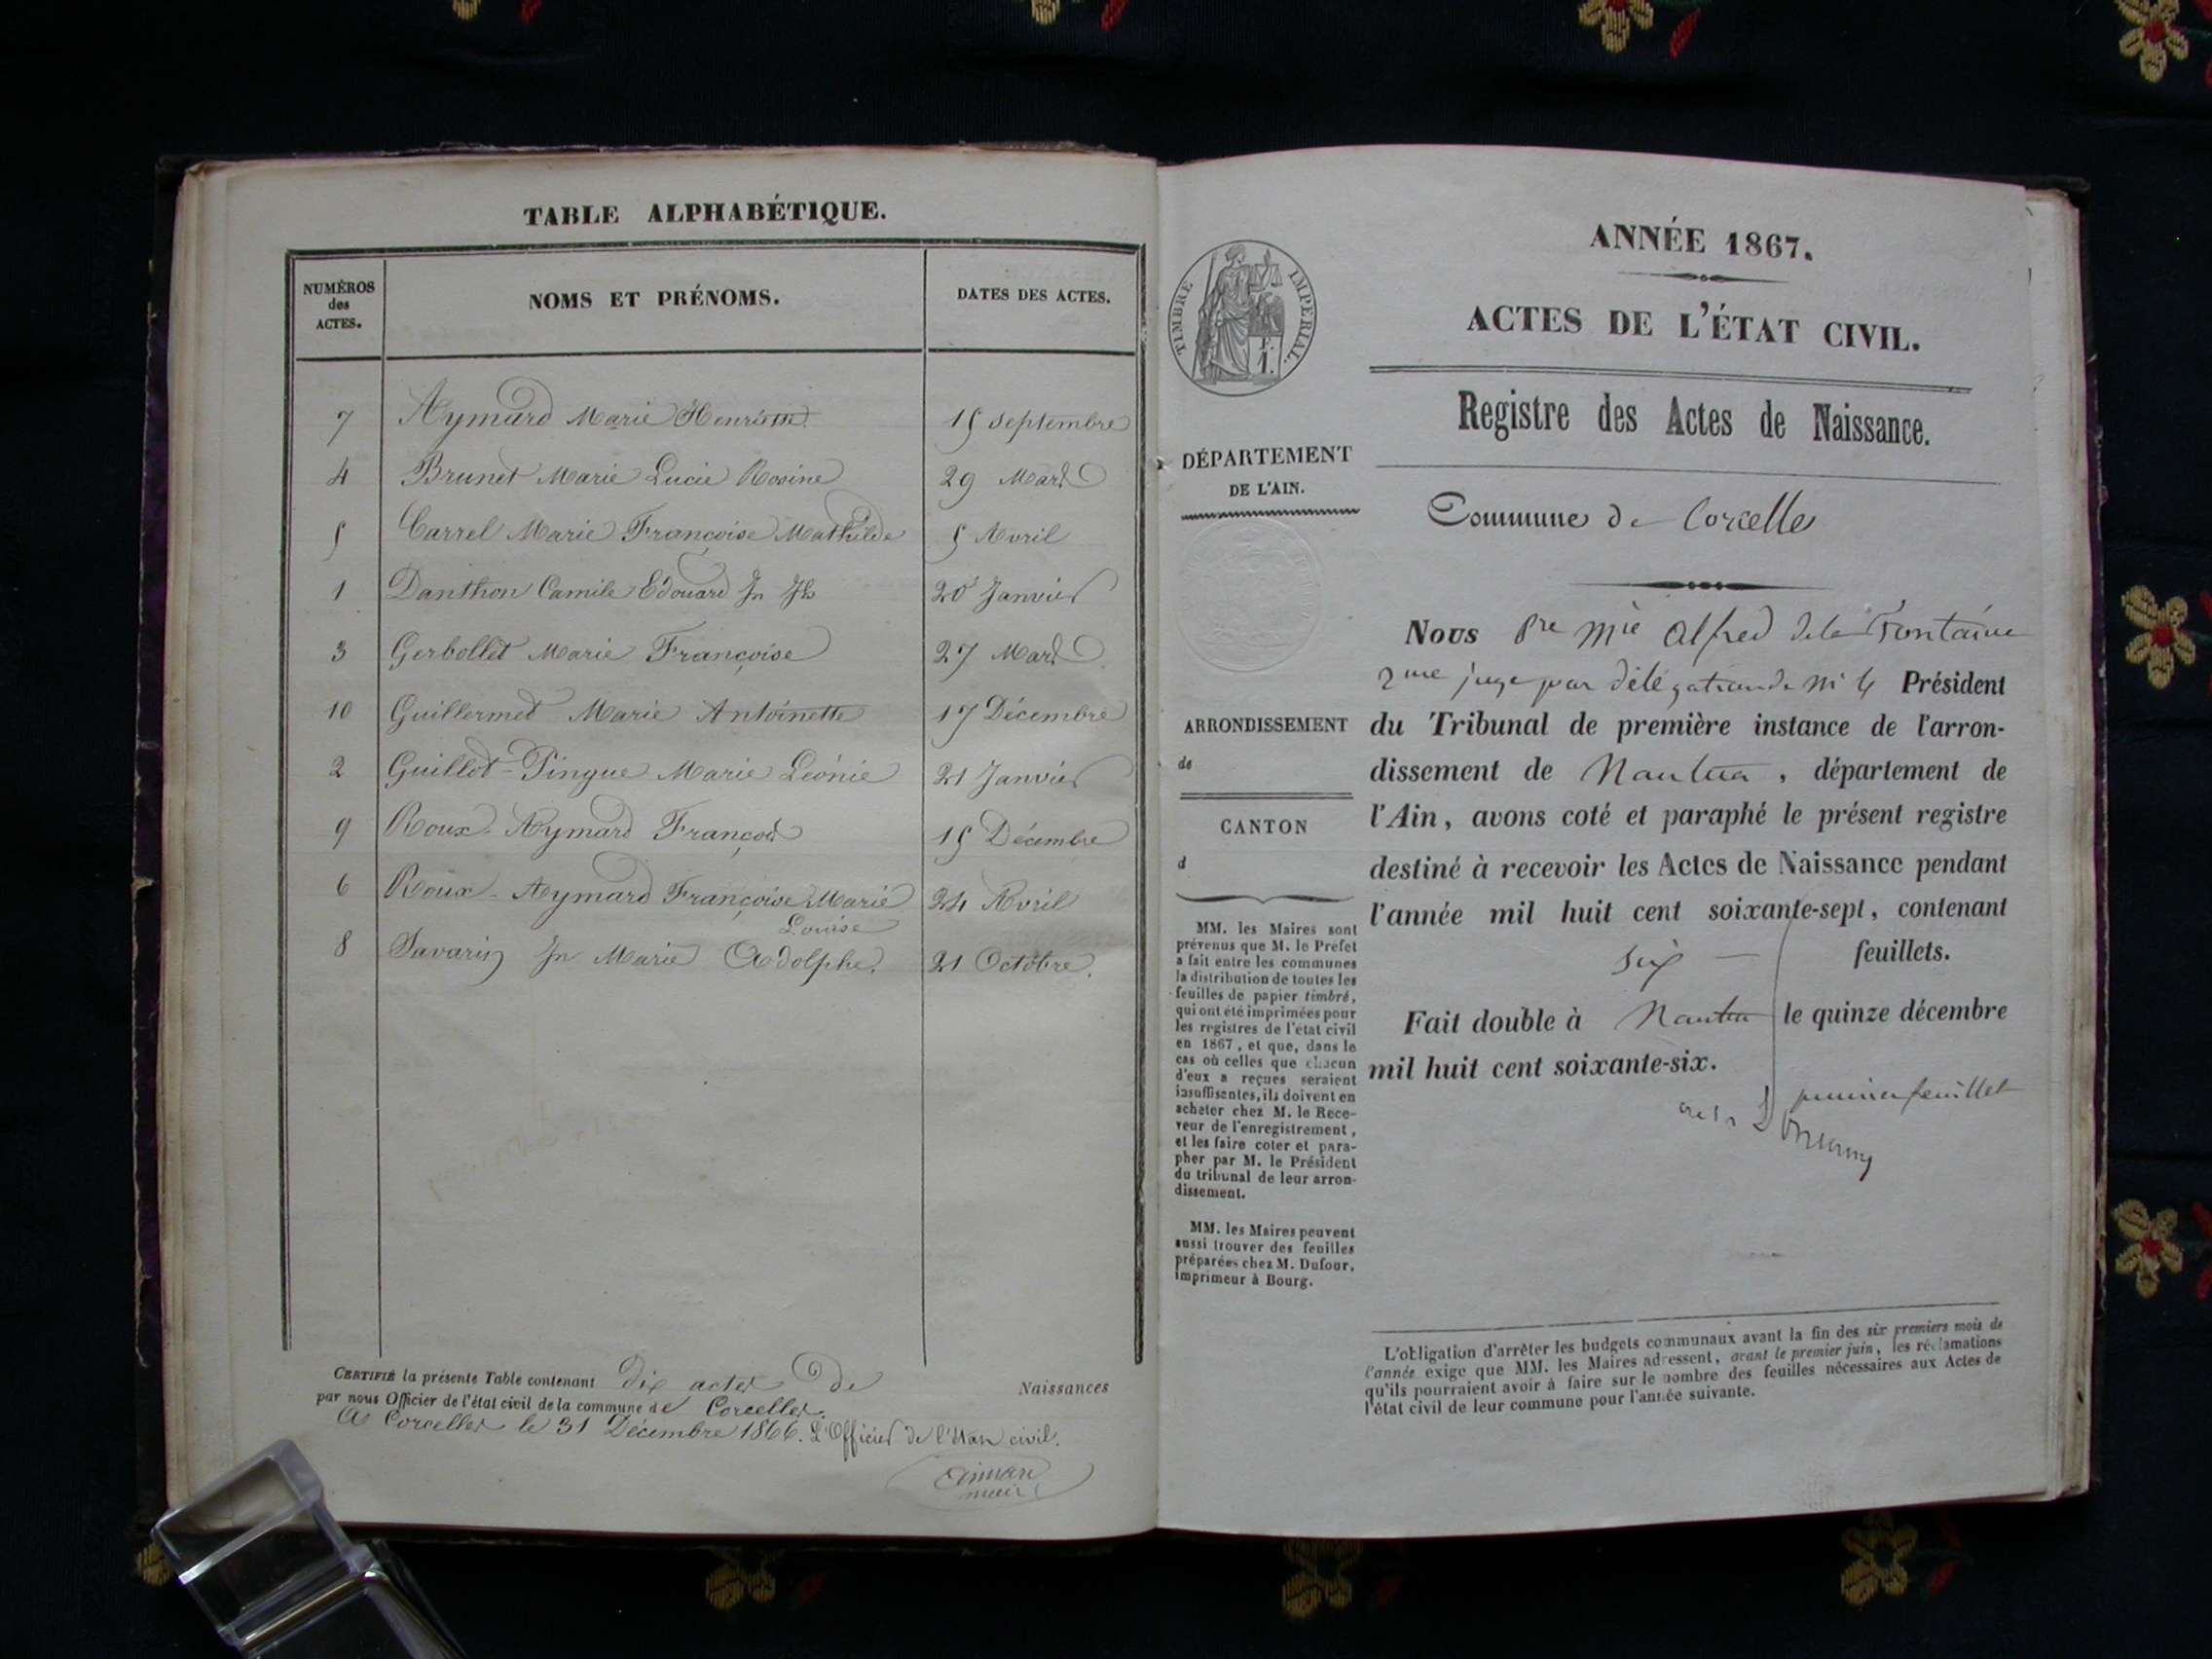 TABLE ALPHABÉTIQUE.
NUMÉROS des ACTES. NOMS ET PRÉNOMS. DATES DES ACTES.
7 Aymard Marie Henriette 15 septembre
4 Brunet Marie Lucie Rosine 29 Mars
5 Carrel Marie Françoise Mathilde 5 Avril
1 Danthon Camile Edouard Jn Jh 20 Janvier
3 Gerbollet Marie Françoise 27 Mars
10 Guillermet Marie Antoinette 17 Décembre
2 Guillot-Pingue Marie Léonie 21 Janvier
9 Roux-Aymard François 15 Décembre
6 Roux-Aymard Françoise Marie 24 Avril
Louise
8 Savarin Jn Marie Adolphe. 21 Octobre.
CERTIFIÉ la présente Table contenant dix actes de Naissances
par nous Officier de l'état civil de la commune de Corcelles.
A Corcelles le 31 Décembre 1866. L'Officier de l'état civil.
ANNÉE 1867.
ACTES DE L'ÉTAT CIVIL.
Registre des Actes de Naissance.
Commune de Corcelles
Nous Pre Mie Alfred de la Fontaine
2me juge par délégation de Mr le Président
du Tribunal de première instance de l'arron-
dissement de Nantua, département de
l'Ain, avons coté et paraphé le présent registre
destiné à recevoir les Actes de Naissance pendant
l'année mil huit cent soixante-sept, contenant
six feuillets.
Fait double à Nantua le quinze décembre
mil huit cent soixante-six.
premier feuillet
TIMBRE IMPÉRIAL.
F.
1.
DÉPARTEMENT
DE L'AIN.
ARRONDISSEMENT
de
CANTON
d
MM. les Maires sont
prévenus que M. le Préfet
a fait entre les communes
la distribution de toutes les
feuilles de papier timbré,
qui ont été imprimées pour
les registres de l'état civil
en 1867, et que, dans le
cas où celles que chacun
d'eux a reçues seraient
insuffisantes, ils doivent en
acheter chez M. le Rece-
veur de l'enregistrement,
et les faire coter et para-
pher par M. le Président
du tribunal de leur arron-
dissement.
MM. les Maires peuvent
aussi trouver des feuilles
préparées chez M. Dufour,
imprimeur à Bourg.
L'obligation d'arrêter les budgets communaux avant la fin des six premiers mois de
l'année exige que MM. les Maires adressent, avant le premier juin, les réclamations
qu'ils pourraient avoir à faire sur le nombre des feuilles nécessaires aux Actes de
l'état civil de leur commune pour l'année suivante.